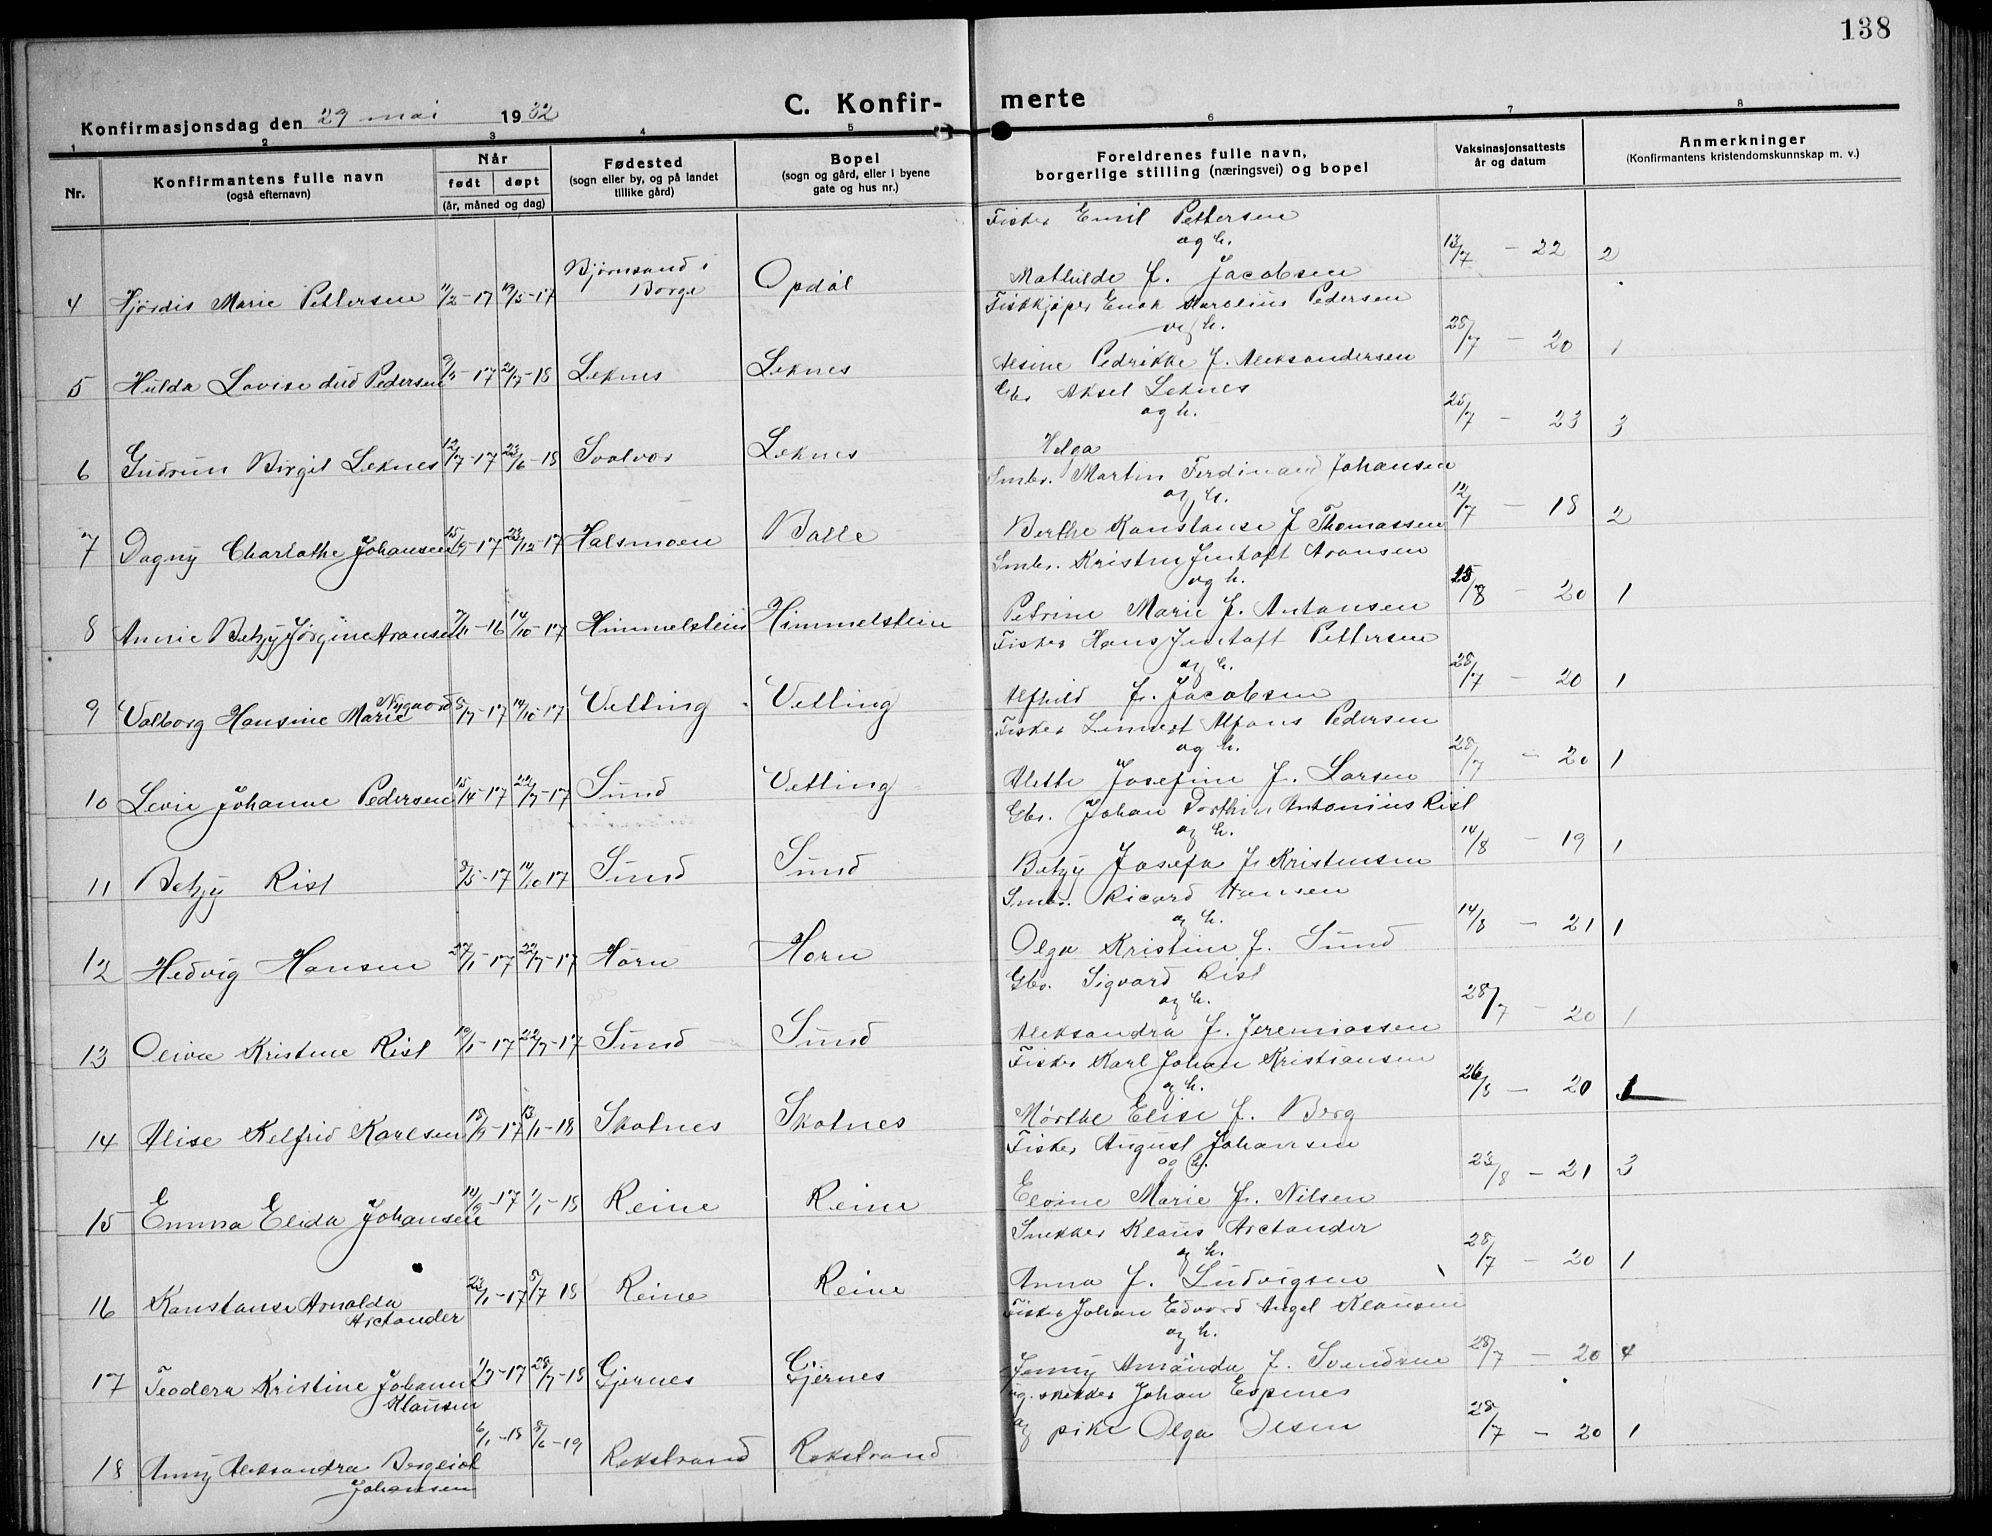 138
C. Konfir- merte
Konfirmasjonsdag den 29 mai 1932
1 2 3 4 5 6 7 8
Nr.
Konfirmantens fulle navn
(også efternavn)
Når
født døpt
(år, måned og dag)
Fødested
(sogn eller by, og på landet
tillike gård)
Bopel
(sogn og gård, eller i byene
gate og hus nr.)
Foreldrenes fulle navn,
borgerlige stilling (næringsvei) og bopel
Vaksinasjonsattests
år og datum
Anmerkninger
(Konfirmantens kristendomskunnskap m. v.)
Fisker Emil Pettersen
og h.
Mathilde f. Jacobsen
4 Hjørdis Marie Pettersen Bjørnsand i Borge Opdøl 13/7 - 22 2
Fiskkjøper Enok Karolius Pedersen
og h.
Alsine Pedrikke f. Aleksandersen
5 Hulda Lovise Pedersen Leknes Leknes 28/7 - 20 1
Gbr Aksel Leknes
og h.
Helga
6 Gudrun Birgit Leknes 12/7-17 23/6-18 Svolvær Leknes 25/7 - 23 3
Smbr. Martin Ferdinand Johansen
og h.
Berthe Konstanse f Thomassen
7 Dagny Charlothe Johansen 23/12-17 Halsmoen Balle 12/7 - 18 2
Smbr. Kristen Jentoft Aronsen
og h.
Petrine Marie f. Antonsen
8 Annie Betzy Jørgine Aronsen 14/10-17 Himmelstein Himmelstein /8 - 20 1
Fisker Hans Jentoft Pettersen
og h.
Alfhild f. Jacobsen
9 Valborg Hansine Marie Nygaard 14/10-17 Vetting Vetting 28/7 - 20 1
Fisker Lennert Alfons Pedersen
og h.
Alette Josefine f. Larsen
10 Levie Johanne Pedersen 15/4-17 22/7-17 Sund Vetting 28/7 - 20 1
Gbr. Johan Antonius Rist
og h.
Betzy Josefa f Kristensen
11 Betzy Rist 14/10 17 Sund Sund 14/8 - 19 1
Smbr. Ricard Hansen
og h.
Olga Kristine f. Sund
12 Hedvig Hansen 27/1-17 22/7-17 Horn Horn 14/8 - 21 1
Gbr. Sigvard Rist
og h.
Aleksandra f. Jeremiassen
13 Olivie Kristine Rist 22/7-17 Sund Sund 28/7 - 20 1
Fisker Karl Johan Kristiansen
og h.
Mørthe Elise f. Berg
14 Alise Kelfrid Karlsen 13/1-18 Skotnes Skotnes 26/8 - 20 1
Fisker August Johansen
og h.
Elvine Marie f. Nilsen
15 Emma Elida Johansen 1/1-18 Reine Reine 23/8 - 21 3
Snekker Klaus Arctander
og h.
Anna f. Ludvigsen
16 Konstanse Arnolda Arctander 23/1-17 5/7 18 Reine Reine 28/7 - 20 1
Fisker Johan Edvard Angel Klausen
og h.
Jenny Amanda f. Svendsen
17 Teodera Kristine Johanne Klausen 28/7-18 Gjernes Gjernes 28/7 - 20 4
Johan Espenes
og pike Olga Olsen
18 Anny Aleksandra Bergliot Johansen 6/1-18 8/6-19 Rokstrand Rokstrand 28/7 - 20 1